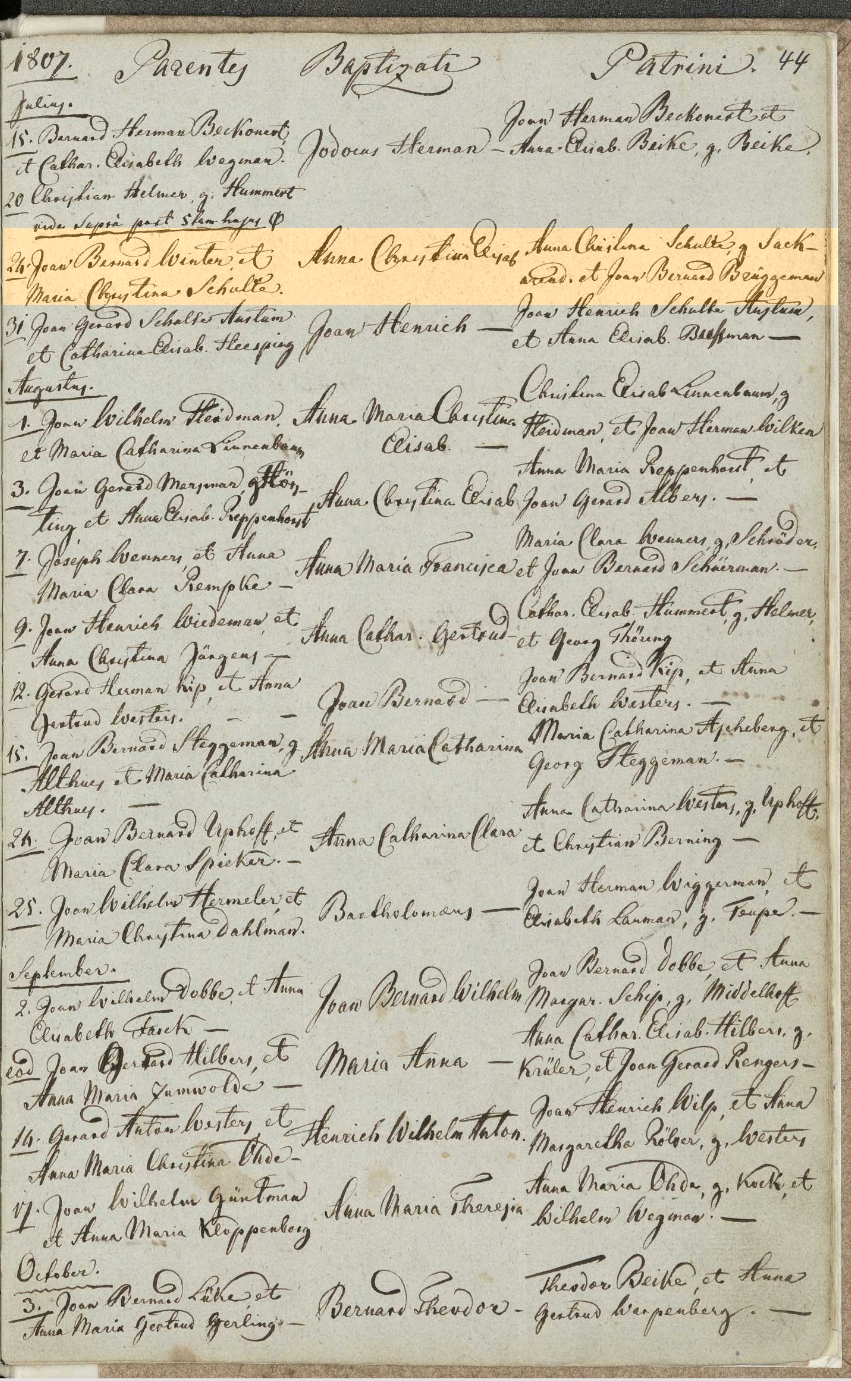 1807. Parentes Baptizati Patrini. 44
Julius.
15. Bernard Herman Beckonert,
et Cathar. Elisabeth Wegman.
Jodocus Herman —
Joan Herman Beckonert et
Anna Elisab. Beike, g. Beike.
20 Christian Helmer, g. Hummert
vide supra post
24. Joan Bernard Winter, et
Maria Christina Schulte.
Anna Christina Elisab
Anna Christina Schulte, g. Sack-
arend. et Joan Bernard Brüggeman
31 Joan Gerard Schulte Austum
et Catharina Elisab. Heesping
Joan Henrich —
Joan Henrich Schulte Austum,
et Anna Elisab. —
Augustus.
1. Joan Wilhelm Heidman,
et Maria Catharina Linnenbaum
Anna Maria Christina
Elisab. —
Christina Elisab Linnenbaum, g
Heidman, et Joan Herman Wilken
3. Joan Gerard Mersman, g Hös-
ting et Anna Elisab. Reppenhorst
Anna Christina Elisab.
Anna Maria Reppenhorst, et
Joan Gerard Albers. —
7. Joseph Wenners, et Anna
Maria Clara Rempke —
Anna Maria Francisca
Maria Clara Wenners, g. Schröder,
et Joan Bernard Schürman. —
9. Joan Henrich Wiedeman, et
Anna Christina Jürgens —
Anna Cathar. Gertrud
Cathar. Elisab. Hummert, g. Helmer,
et Georg Thöring
12. Gerard Herman Kip, et Anna
Gertrud Westers. — —
Joan Bernard —
Joan Bernard Kip, et Anna
Elisabeth Westers. —
15. Joan Bernard Steggeman, g
Althues et Maria Catharina
Althues. —
Anna Maria Catharina
Maria Catharina Ascheberg, et
Georg Steggeman. —
24. Joan Bernard Uphoff, et
Maria Clara Spieker. —
Anna Catharina Clara
Anna Catharina Westers, g. Uphoff,
et Christian Berning —
25. Joan Wilhelm Hermeler, et
Maria Christina Dahlman.
Bartholomæus —
Joan Herman Wiggerman, et
Elisabeth Lauman, g. Teupe. —
September.
2. Joan Wilhelm Dobbe, et Anna
Elisabeth Farck —
Joan Bernard Wilhelm
Joan Bernard Dobbe, et Anna
Margar. Schip, g. Middelhoff
eod Joan Gerard Hilbers, et
Anna Maria Zumwolde —
Maria Anna —
Anna Cathar. Elisab. Hilbers, g.
Krüler, et Joan Gerard Rengers —
14. Gerard Anton Westers, et
Anna Maria Christina Ohde —
Henrich Wilhelm Anton.
Joan Henrich Wilp, et Anna
Margaretha Rölver, g. Westers
17. Joan Wilhelm Güntman
et Anna Maria Kloppenborg
Anna Maria Theresia
Anna Maria Ohde, g. Kock, et
Wilhelm Wegman. —
October.
3. Joan Bernard Lüke, et
Anna Maria Gertrud Gerling. —
Bernard Theodor —
Theodor Beike, et Anna
Gertrud Warpenberg. —